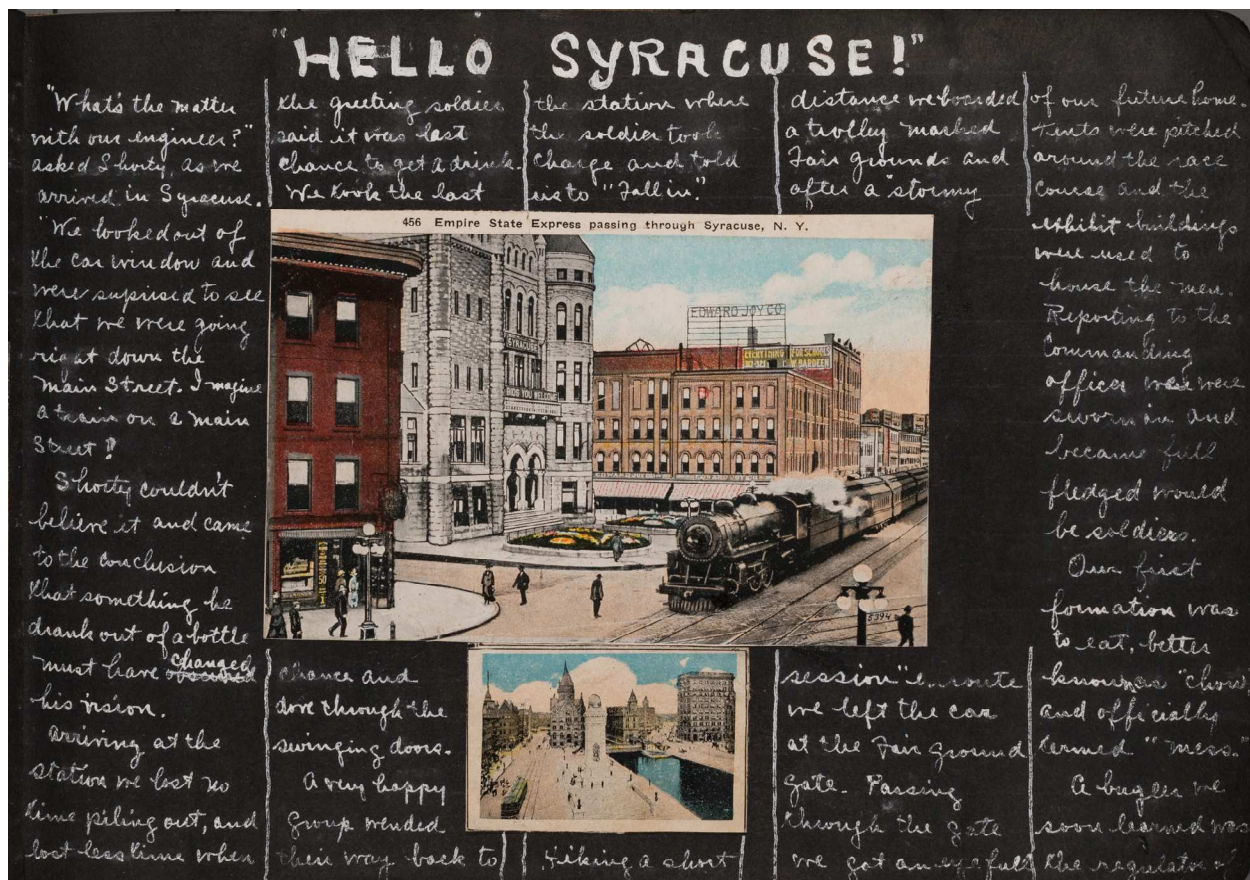 "HELLO SYRACUSE!"
"What's the matter
with our engineer?"
asked Shorty, as we
arrived in Syracuse.
"We looked out of
the car window and
were suprised to see
that we were going
right down the
Main Street. Imagine
a train on a main
Street!!
Shorty couldn't
believe it and came
to the conclusion
that something he
drank out of a bottle
must have changed
his vision.
Arriving at the
station we lost no
time piling out, and
lost less time when
the greeting soldier
said it was last
chance to get a drink.
We took the last
chance and
dove through the
swinging doors.
A very happy
group wended
their way back to
the station where
the soldier took
charge and told
us to "Fall in".
Hiking a short
distance we boarded
a trolley marked
Fair grounds and
after a "stormy
session" enroute
we left the car
at the Fair ground
gate. Passing
through the gate
we got an eye full
of our future home.
Tents were pitched
around the race
course and the
exhibit buildings
were used to
house the men.
Reporting to the
Commanding
officer we were
sworn in and
became full
fledged would
be soldiers.
Our first
formation was
to eat, better
known as "chow"
and officially
termed "mess."
A bugler we
soon learned was
the regulator of
456 Empire State Express passing through Syracuse, N. Y.
EDWARD JOY CO
EVERYTHING FOR SCHOOL
BARDEEN
SYRACUSE
BIDS YOU WELCOME
EDWARD JOY CO
5394